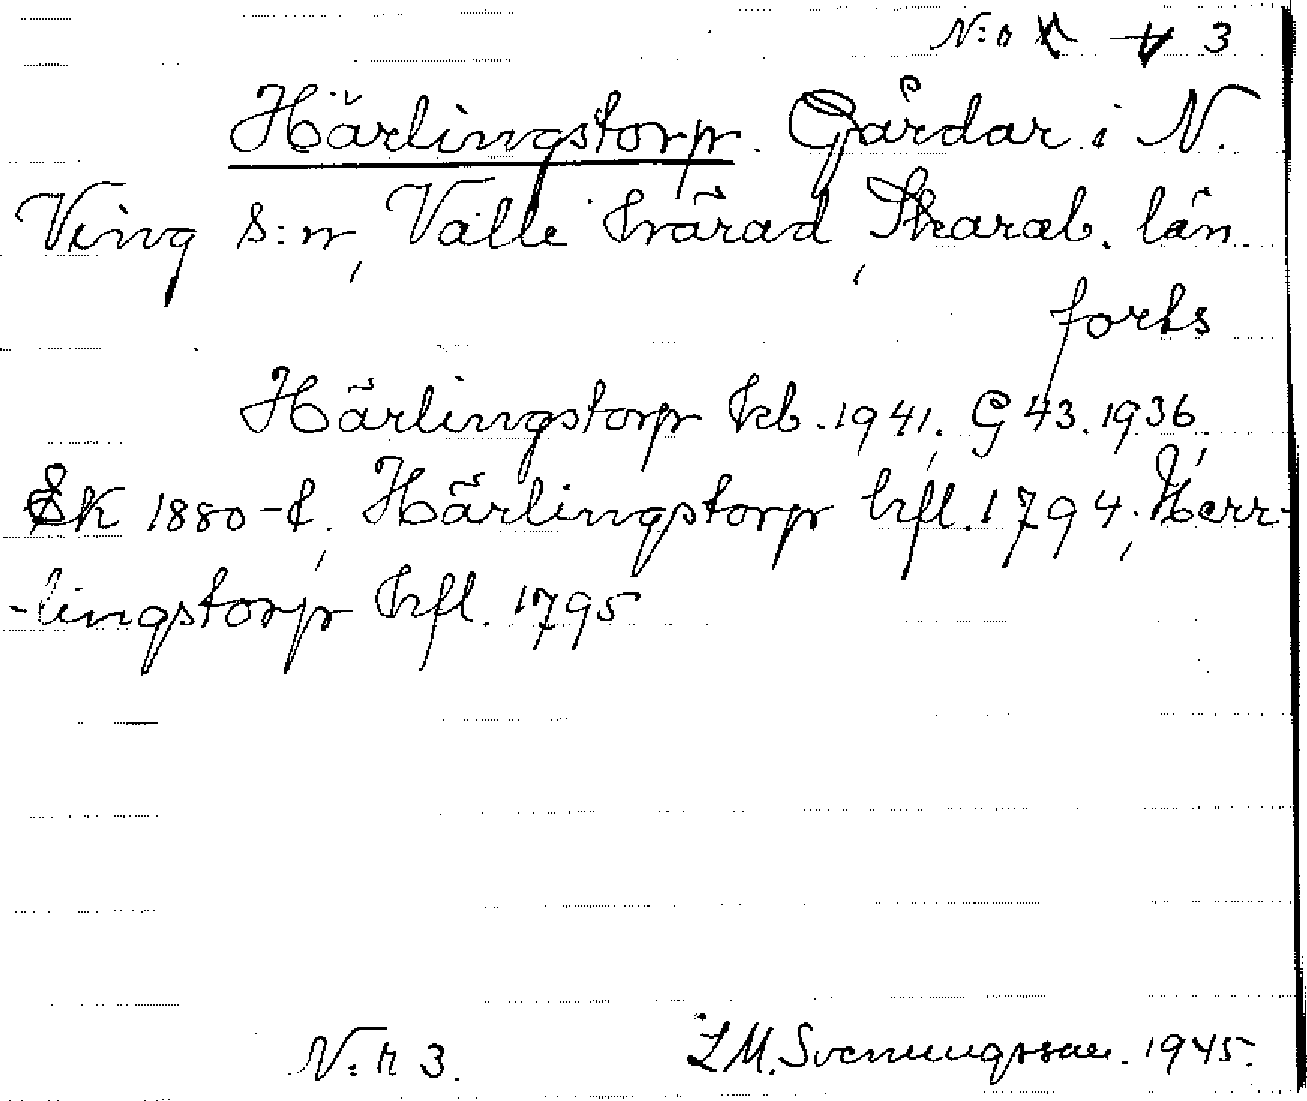 N:o 3
Härlingstorp. Gårdar i N.
Ving s:n, Valle härad, Skarab. län.
forts
Härlingstorp kb. 1941, G 43. 1936,
EK 1880-t, Härlingstorp hfl. 1794, Herr-
-lingstorp hfl. 1795
N:r 3. L M. Svenungsson. 1945.